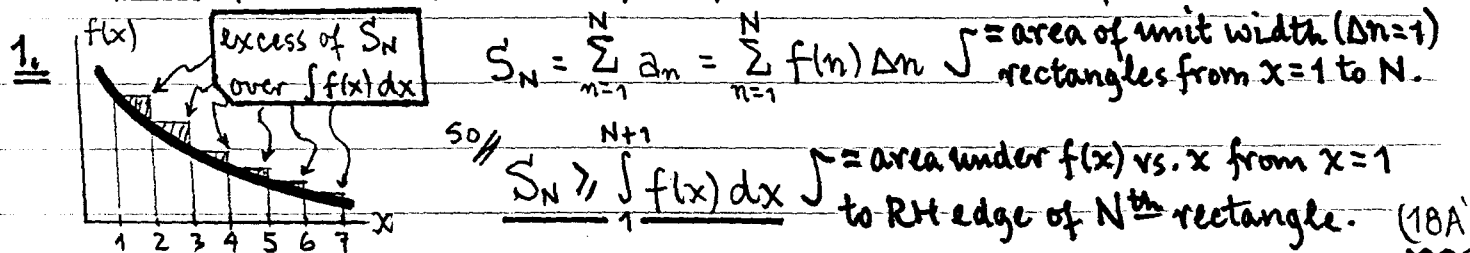 1. f(x) excess of S_N over ∫f(x)dx
S_N = Σ_{n=1}^{N} a_n = Σ_{n=1}^{N} f(n) Δn } = area of unit width (Δn=1)
rectangles from x=1 to N.
so// S_N ≥ ∫_1^{N+1} f(x) dx } = area under f(x) vs. x from x=1
to RH edge of Nth rectangle. (18A)
x
1 2 3 4 5 6 7